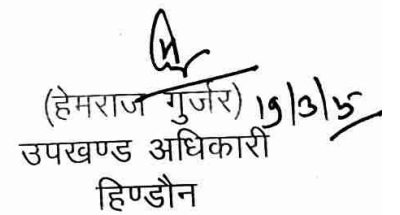 (हेमराज गुर्जर) 19/3/15
उपखण्ड अधिकारी
हिण्डौन